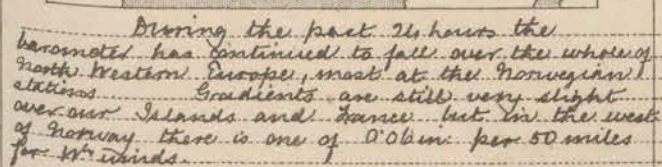 During the past 24 hours the
barometer has continued to fall over the whole of
North Western Europe, most at the Norwegian
stations. Gradients are still very slight
over our Islands and France but in the west
of Norway there is one of 0.06in: per 50 miles
for Wly winds.